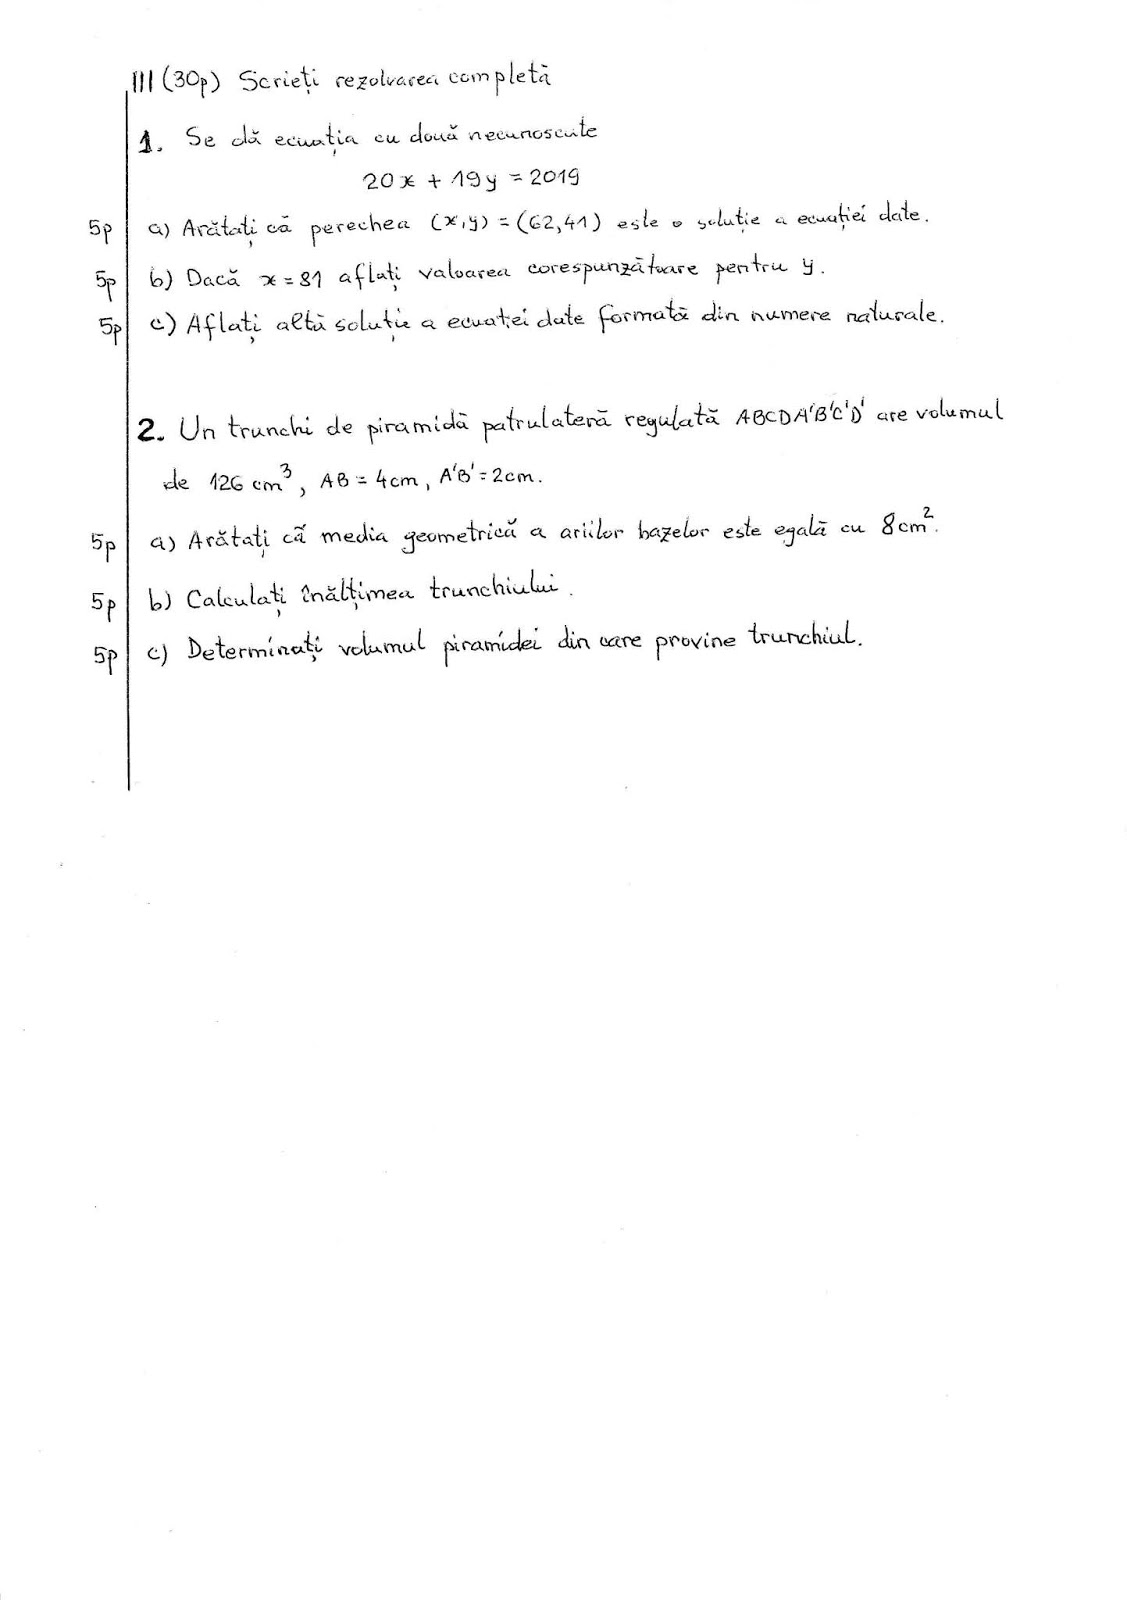 III (30p) Scrieți rezolvarea completă
1. Se dă ecuația cu două necunoscute
20x + 19y = 2019
5p a) Arătați că perechea (x,y) = (62,41) este o soluție a ecuației date.
5p b) Dacă x = 81 aflați valoarea corespunzătoare pentru y.
5p c) Aflați altă soluție a ecuației date formată din numere naturale.
2. Un trunchi de piramidă patrulateră regulată ABCDA'B'C'D' are volumul
de 126 cm³, AB = 4cm, A'B' = 2cm.
5p a) Arătați că media geometrică a ariilor bazelor este egală cu 8cm².
5p b) Calculați înălțimea trunchiului.
5p c) Determinați volumul piramidei din care provine trunchiul.